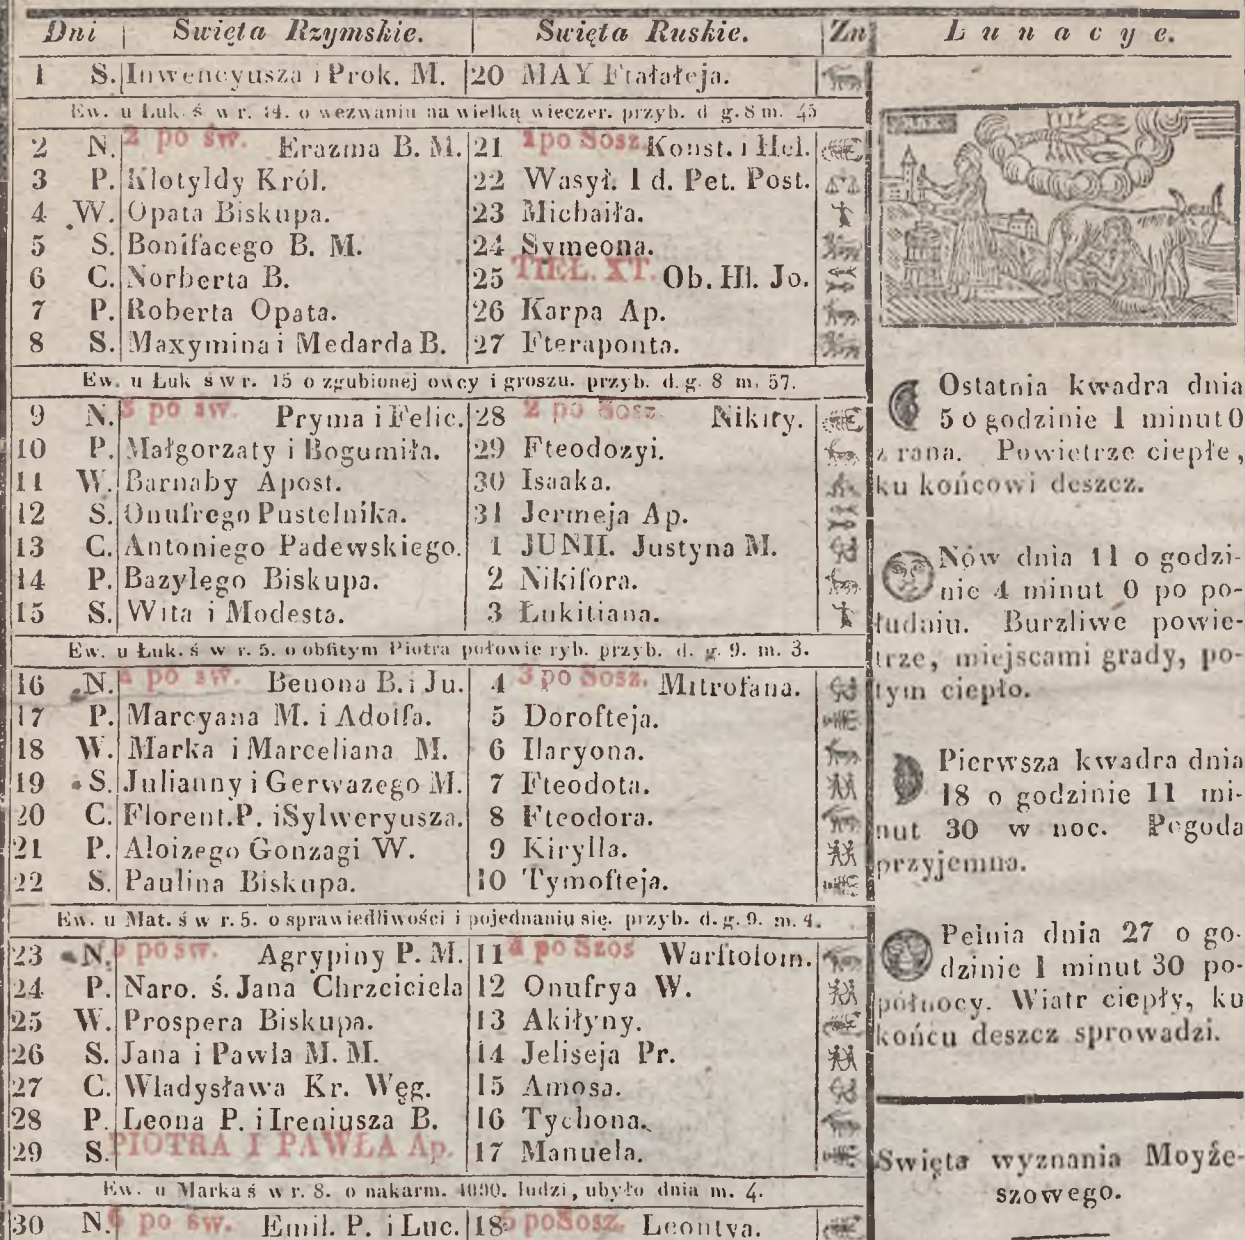 Dni Swięta Rzymskie. Swięta Ruskie. Zn Lunacye.
1 S. Inwencyusza i Prok. M. 20 MAY Ftałałeja.
Ew. u Łuk. ś w r. 14. o wezwaniu na wielką wieczer. przyb. d g. 8 m. 45
2 N. 2 po św. Erazma B. M. 21 1 po Sosz. Konst. i Hel.
3 P. Klotyldy Król. 22 Wasył. 1 d. Pet. Post.
4 W. Opata Biskupa. 23 Michaiła.
5 S. Bonifacego B. M. 24 Symeona.
6 C. Norberta B. 25 TIEŁ. XT. Ob. Hl. Jo.
7 P. Roberta Opata. 26 Karpa Ap.
8 S. Maxymina i Medarda B. 27 Fteraponta.
Ew. u Łuk ś w r. 15 o zgubionej owcy i groszu. przyb. d. g. 8 m. 57.
9 N. 3 po św. Pryma i Felic. 28 2 po Sosz Nikity.
10 P. Małgorzaty i Bogumiła. 29 Fteodozyi.
11 W. Barnaby Apost. 30 Isaaka.
12 S. Onufrego Pustelnika. 31 Jermeja Ap.
13 C. Antoniego Padewskiego. 1 JUNII. Justyna M.
14 P. Bazylego Biskupa. 2 Nikifora.
15 S. Wita i Modesta. 3 Łukiliana.
Ew. u Łuk. ś w r. 5. o obfitym Piotra połowie ryb. przyb. d. g. 9. m. 3.
16 N. 4 po św. Benona B. i Ju. 4 3 po Sosz. Mitrofana.
17 P. Marcyana M. i Adolfa. 5 Dorofteja.
18 W. Marka i Marceliana M. 6 Ilaryona.
19 S. Julianny i Gerwazego M. 7 Fteodota.
20 C. Florent. P. i Sylweryusza. 8 Fteodora.
21 P. Aloizego Gonzagi W. 9 Kirylla.
22 S. Paulina Biskupa. 10 Tymofteja.
Ew. u Mat. ś w r. 5. o sprawiedliwości i pojednaniu się. przyb. d. g. 9. m. 4.
23 N. 5 po św. Agrypiny P. M. 11 4 po Szos Warftołom.
24 P. Naro. ś. Jana Chrzciciela 12 Onufrya W.
25 W. Prospera Biskupa. 13 Akiłyny.
26 S. Jana i Pawla M. M. 14 Jeliseja Pr.
27 C. Wladysława Kr. Węg. 15 Amosa.
28 P. Leona P. i Ireniusza B. 16 Tychona.
29 S. PIOTRA I PAWŁA Ap. 17 Manuela.
Ew. u Marka ś w r. 8. o nakarm. 4000. ludzi, ubyło dnia m. 4.
30 N. 6 po św. Emil. P. i Luc. 18 5 po Sosz. Leontya.
Ostatnia kwadra dnia
5 o godzinie 1 minut 0
z rana. Powietrze ciepłe,
ku końcowi deszcz.
Nów dnia 11 o godzi-
nie 4 minut 0 po po-
łudniu. Burzliwe powie-
trze, miejscami grady, po-
tym ciepło.
Pierwsza kwadra dnia
18 o godzinie 11 mi-
nut 30 w noc. Pogoda
przyjemna.
Pełnia dnia 27 o go-
dzinie 1 minut 30 po-
północy. Wiatr ciepły, ku
końcu deszcz sprowadzi.
Swięta wyznania Moyże-
szowego.